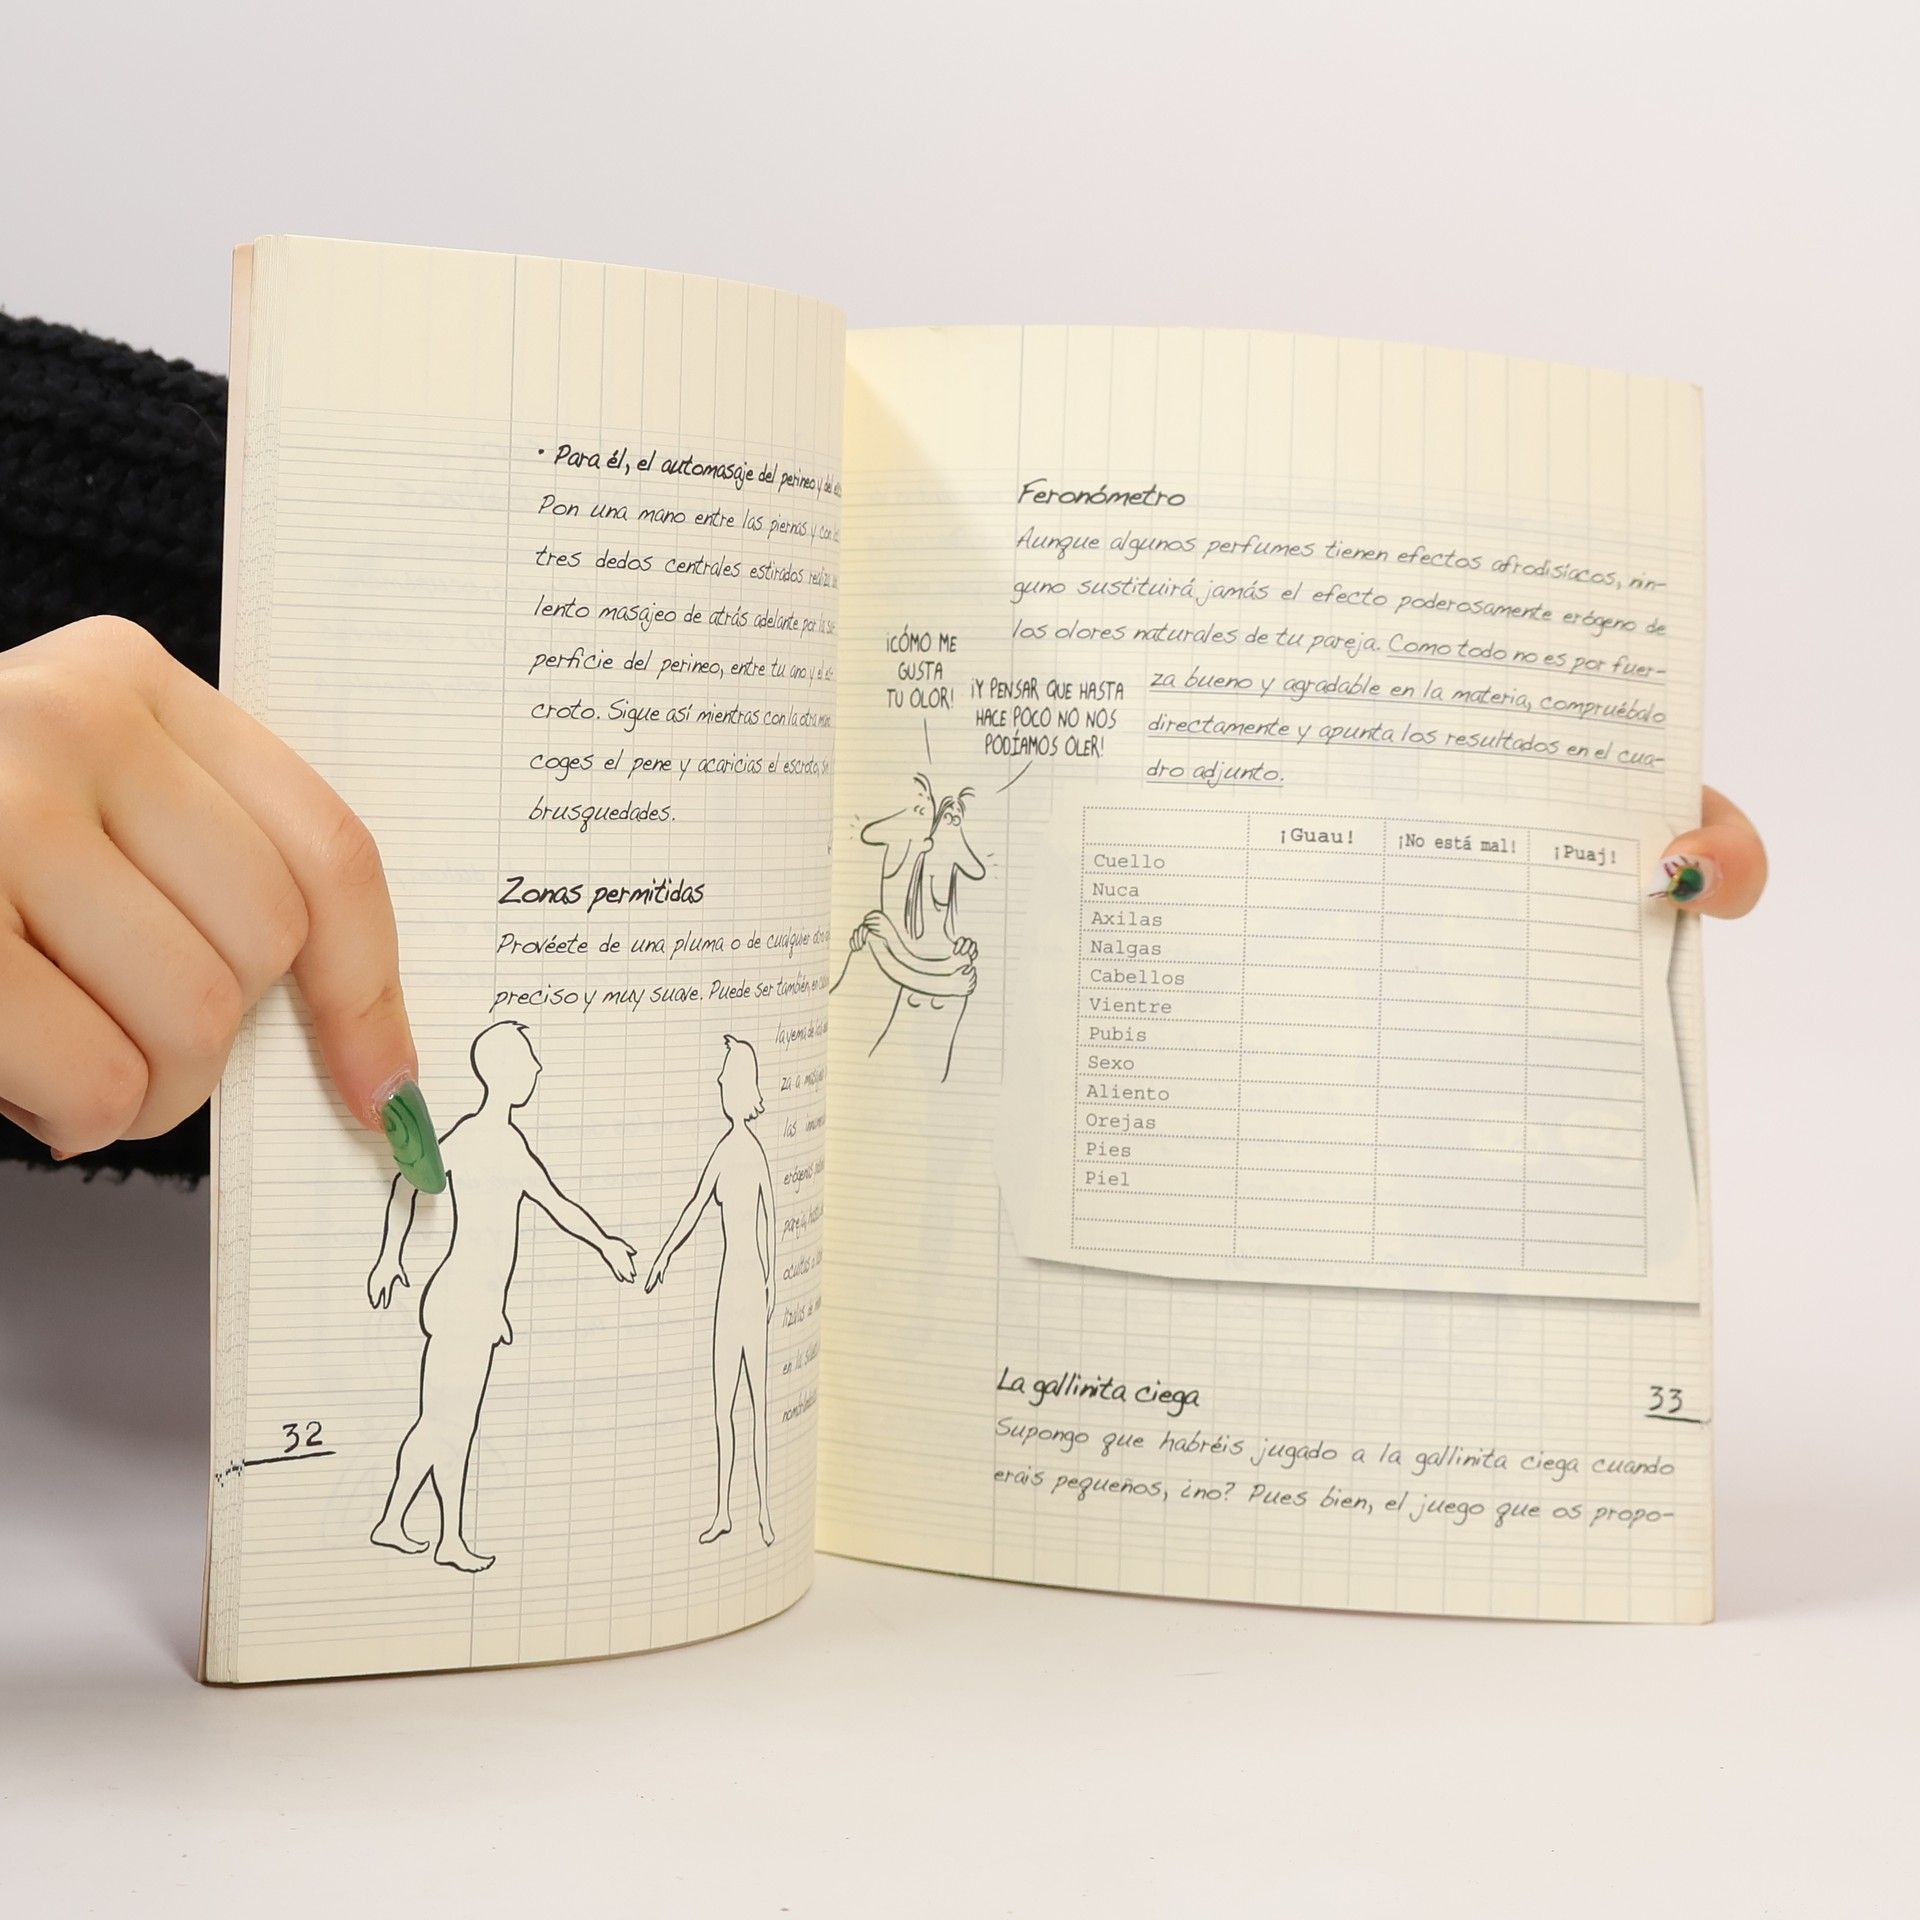 • Para él, el automasaje del perineo y del
Pon una mano entre las piernas y con
tres dedos centrales estirados
lento masajeo de atrás adelante por la
perficie del perineo, entre tu ano y el
croto. Sigue así mientras con la otra
coges el pene y acaricias el escroto,
brusquedades.
Zonas permitidas
Provéete de una pluma o de cualquier
preciso y muy suave. Puede ser también, en
la yema de
za a
las
erógenas
pareja,
ocultas o
en la
32
Feronómetro
Aunque algunos perfumes tienen efectos afrodisíacos, nin-
guno sustituirá jamás el efecto poderosamente erógeno de
los olores naturales de tu pareja. Como todo no es por fuer-
za bueno y agradable en la materia, compruébalo
directamente y apunta los resultados en el cua-
dro adjunto.
¡CÓMO ME
GUSTA
TU OLOR!
¡Y PENSAR QUE HASTA
HACE POCO NO NOS
PODÍAMOS OLER!
¡Guau! ¡No está mal! ¡Puaj!
Cuello
Nuca
Axilas
Nalgas
Cabellos
Vientre
Pubis
Sexo
Aliento
Orejas
Pies
Piel
La gallinita ciega
Supongo que habréis jugado a la gallinita ciega cuando
erais pequeños, ¿no? Pues bien, el juego que os propo-
33